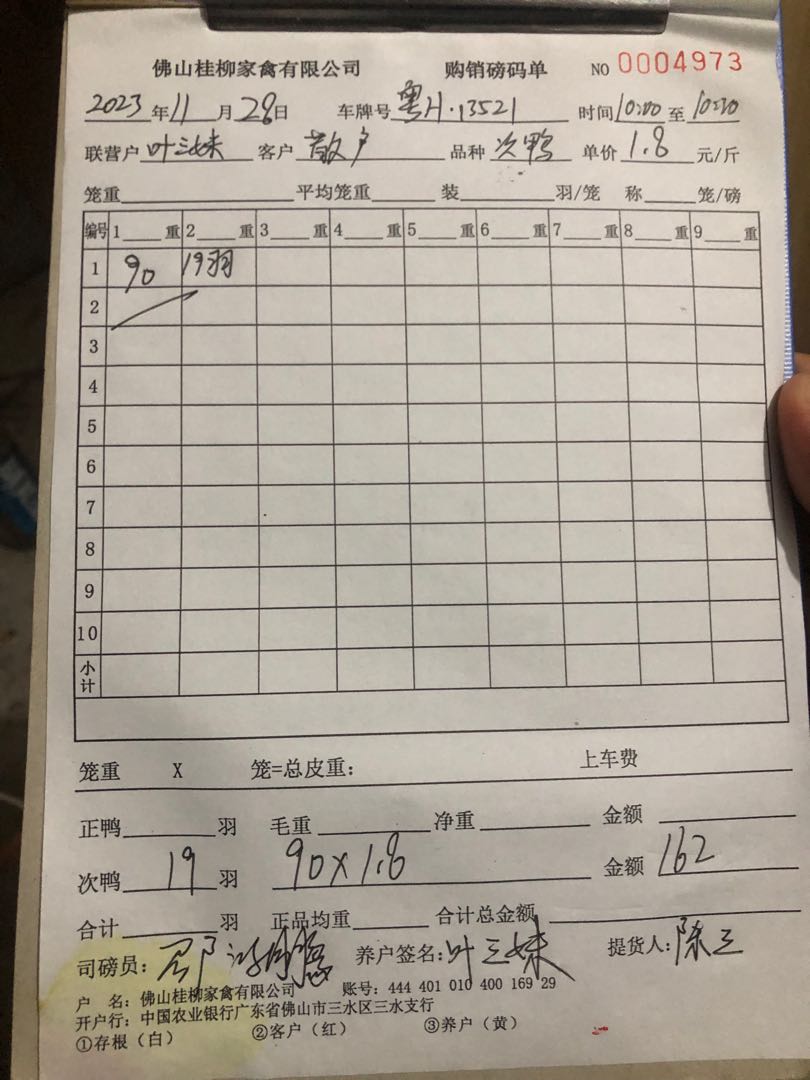 佛山桂柳家禽有限公司 购销磅码单 NO 0004973
2023年11月28日 车牌号粤H·13521 时间10:00至10:20
联营户叶三妹 客户散户 品种次鸭 单价1.8元/斤
笼重 平均笼重 装 羽/笼 称 笼/磅
编号 1 重 2 重 3 重 4 重 5 重 6 重 7 重 8 重 9 重
1 90 19羽
2
3
4
5
6
7
8
9
10
小计
笼重 X 笼=总皮重： 上车费
正鸭 羽 毛重 净重 金额
次鸭 19 羽 90×1.8 金额 162
合计 羽 正品均重 合计总金额
司磅员： 养户签名：叶三妹 提货人：陈三
户 名：佛山桂柳家禽有限公司 账号：444 401 010 400 169 29
开户行：中国农业银行广东省佛山市三水区三水支行
①存根（白） ②客户（红） ③养户（黄）